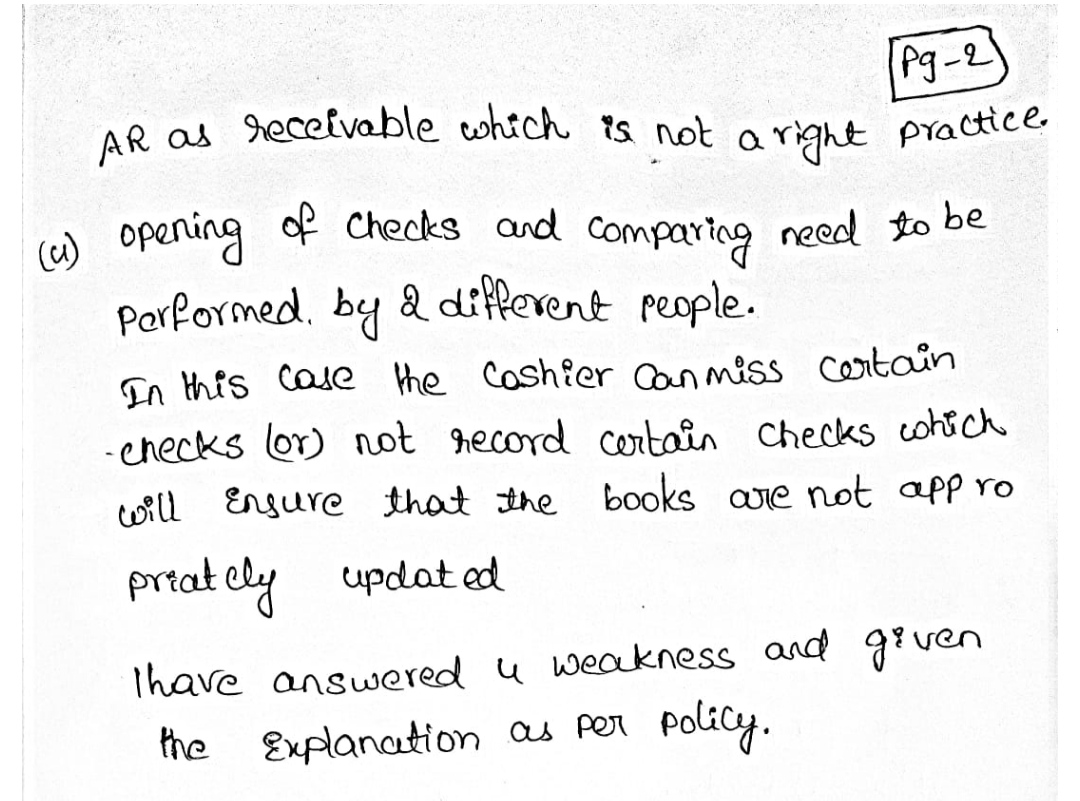 Pg-2
AR as receivable which is not a right practice.
(4) opening of checks and comparing need to be
performed. by 2 different people.
In this case the Cashier can miss certain
checks (or) not record certain checks which
will Ensure that the books are not appro
priately updated
I have answered 4 weakness and given
the Explanation as per policy.